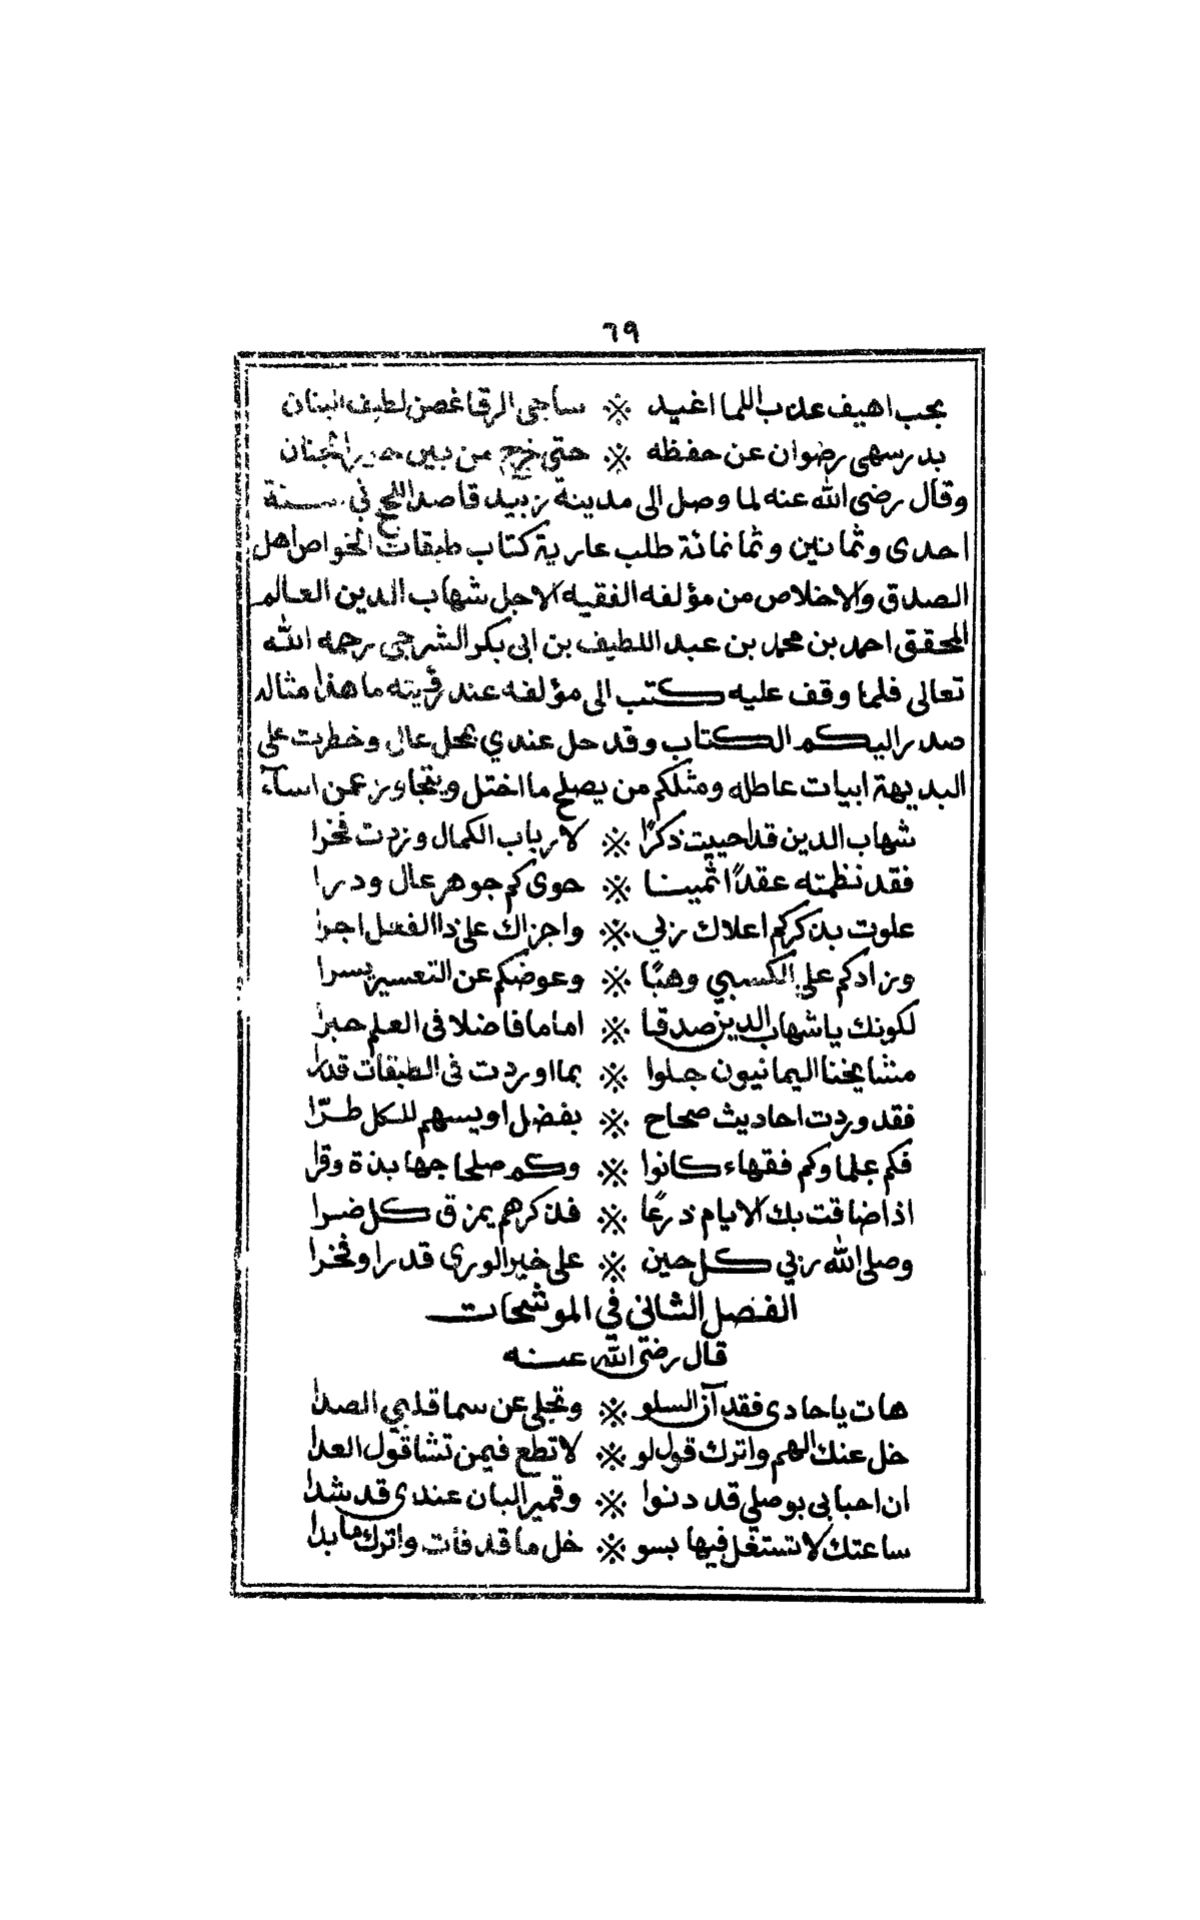 ٦٩
بحب اهيف عذب اللما اغيد ※ ساجي الرقا غصن لطيف البنان
بدر سهى رضوان عن حفظه ※ حتى خرج من بين حور الجنان
وقال رضي الله عنه لما وصل الى مدينة زبيد قاصد الحج في سنة
احدى وثمانين وثمانمائة طلب عارية كتاب طبقات الخواص اهل
الصدق والاخلاص من مؤلفه الفقيه الاجل شهاب الدين العالم
المحقق احمد بن محمد بن عبد اللطيف بن ابي بكر الشرجي رحمه الله
تعالى فلما وقف عليه كتب الى مؤلفه عند قريته ما هذا مثاله
صدر اليكم الكتاب وقد حل عندي بمحل عال وخطرت على
البديهة ابيات عاطله ومثلكم من يصلح ما اختل ويتجاوز عمن اسآء
شهاب الدين قد احييت ذكرًا ※ لارباب الكمال وزدت فخرا
فقد نظمته عقدًا ثمينا ※ حوى كم جوهر عال ودرا
علوت بذكركم اعلاك ربي ※ واجزاك على ذا الفضل اجرا
وزادكم على الكسبي وهبًا ※ وعوضكم عن التعسير يسرا
لكونك يا شهاب الدين صدقا ※ اماما فاضلا في العلم حبرا
مشايخنا اليمانيون جلوا ※ بما اوردت في الطبقات قدرا
فقد وردت احاديث صحاح ※ بفضل اويسهم للكل طرّا
فكم علما وكم فقهاء كانوا ※ وكم صلحا جهابذة وقرا
اذا ضاقت بك الايام ذرعًا ※ فذكرهم يمزق كل ضرا
وصلى الله ربي كل حين ※ على خير الورى قدرا وفخرا
الفصل الثاني في الموشحات
قال رضي الله عنه
هات يا حادى فقد آن السلو ※ وتجلى عن سما قلبي الصدا
خل عنك الهم واترك قول لو ※ لا تطع فيمن تشا قول العدا
ان احبابي بوصلي قد دنوا ※ وقمير البان عندى قد شدا
ساعتك لا تستغل فيها بسو ※ خل ما قد فات واترك ما بدا